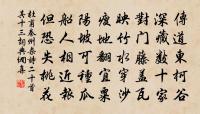 傳道東柯谷
深藏數十家
對門藤蓋瓦
映竹水穿沙
瘦地翻宜粟
陽坡可種瓜
船人相近報
但恐失桃花
杜甫秦州雜詩二十首
其十三詞典網集